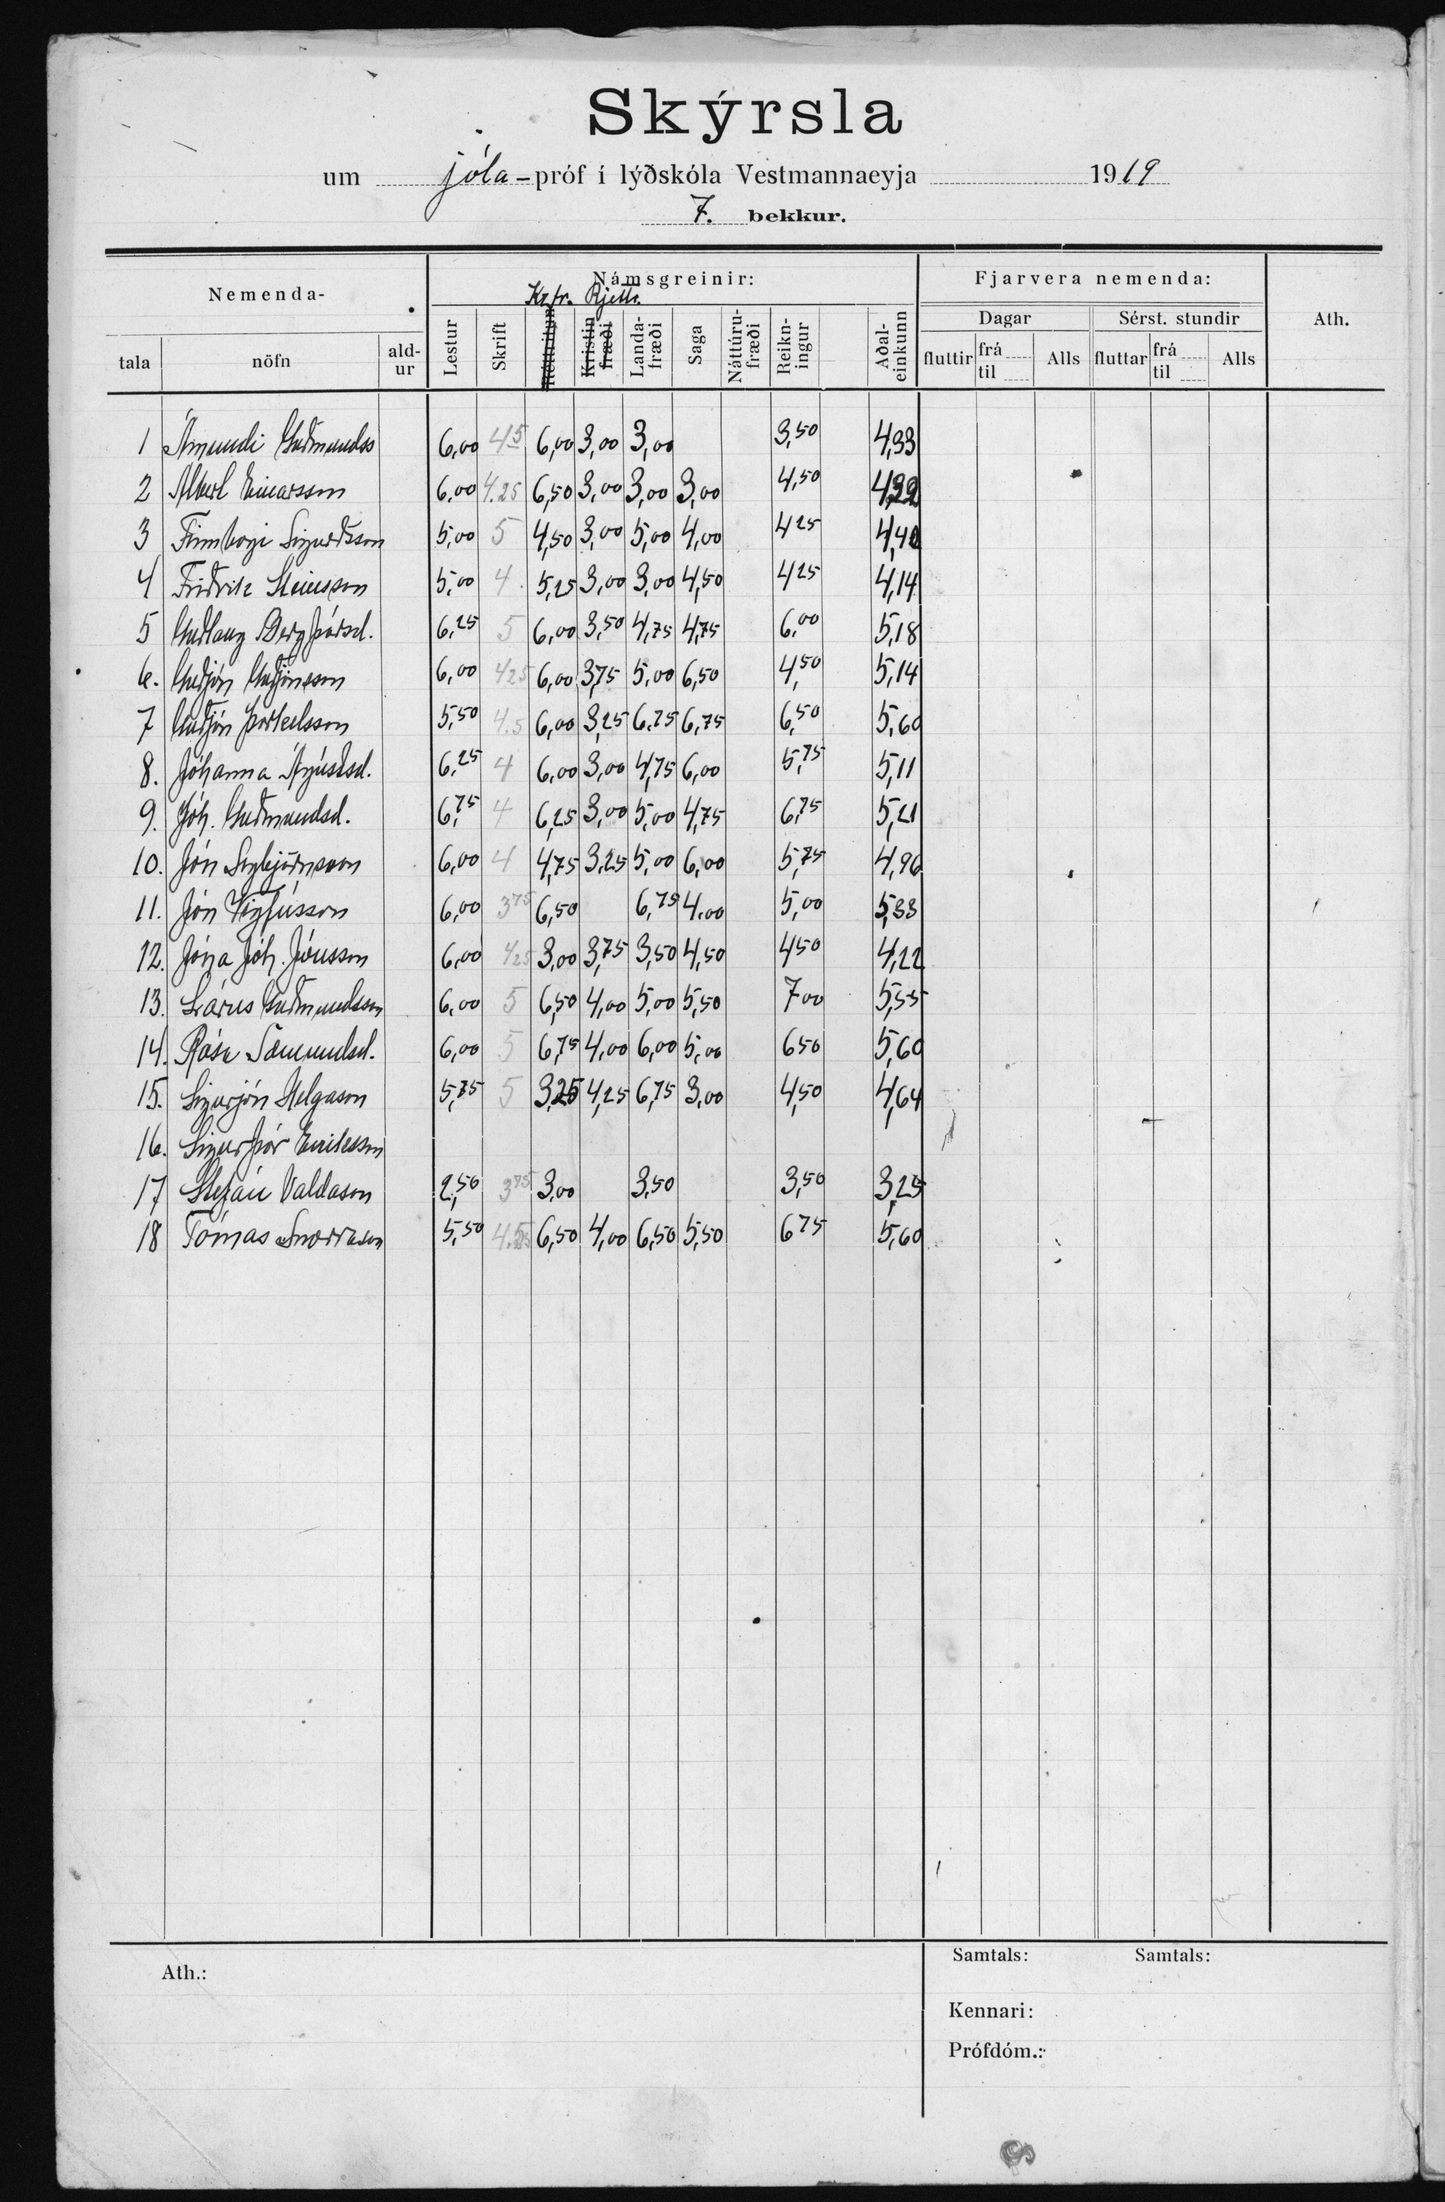 Skýrsla
um jóla-próf í lýðskóla Vestmannaeyja 1919
7. bekkur.
Nemenda-
Námsgreinir:
Fjarvera nemenda:
Ath.
Kr.fr. Rjettr.
Dagar
Sérst. stundir
tala nöfn ald-ur Lestur Skrift Réttritun Kristin fræði Landa-fræði Saga Náttúru-fræði Reikn-ingur Aðal-einkunn fluttir frá til Alls fluttar frá til Alls
1 Ámundi Guðmundss 6,00 4.5 6,00 3,00 3,00 3,50 4,33
2 Albert Einarsson 6,00 4.25 6,50 3,00 3,00 3,00 4,50
3 Finnbogi Sigurðsson 5,00 5 4,50 3,00 5,00 4,00 4 25 4,40
4 Friðrik Steinsson 5,00 4 5,25 3,00 3,00 4,50 4 25 4,14
5 Guðlaug Bergþórsd. 6,25 5 6,00 3,50 4,75 4,75 6,00 5,18
6. Guðjón Guðjónsson 6,00 4 25 6,00 3,75 5,00 6,50 4,50 5,14
7 Guðjón Þorkelsson 5,50 4.5 6,00 3,25 6,75 6,75 6,50 5,60
8. Jóhanna Ágústsd. 6,25 4 6,00 3,00 4,75 6,00 5,75 5,11
9. Jóh. Guðmundsd. 6,75 4 6,25 3,00 5,00 4,75 6,75 5,21
10. Jón Sigbjörnsson 6,00 4 4,75 3,25 5,00 6,00 5,75 4,96
11. Jón Vigfússon 6,00 3 75 6,50 6,75 4,00 5,00 5,33
12. Jóna Jóh. Jónsson 6,00 4 25 3,00 3,75 3,50 4,50 4 50 4,22
13. Lárus Guðmundsson 6,00 5 6,50 4,00 5,00 5,50 7 00 5,55
14. Rósa Sæmundsd. 6,00 5 6,75 4,00 6,00 5,00 6 50 5,60
15. Sigurjón Helgason 5,75 5 3,25 4,25 6,75 3,00 4,50 4,64
16. Sigurþór
17 Stefán Valdason 2,50 3 75 3,00 3,50 3,50 3,25
18 Tómas Snorrason 5,50 6,50 4,00 6,50 5,50 6 75 5,60
Ath.:
Samtals: Samtals:
Kennari:
Prófdóm.: